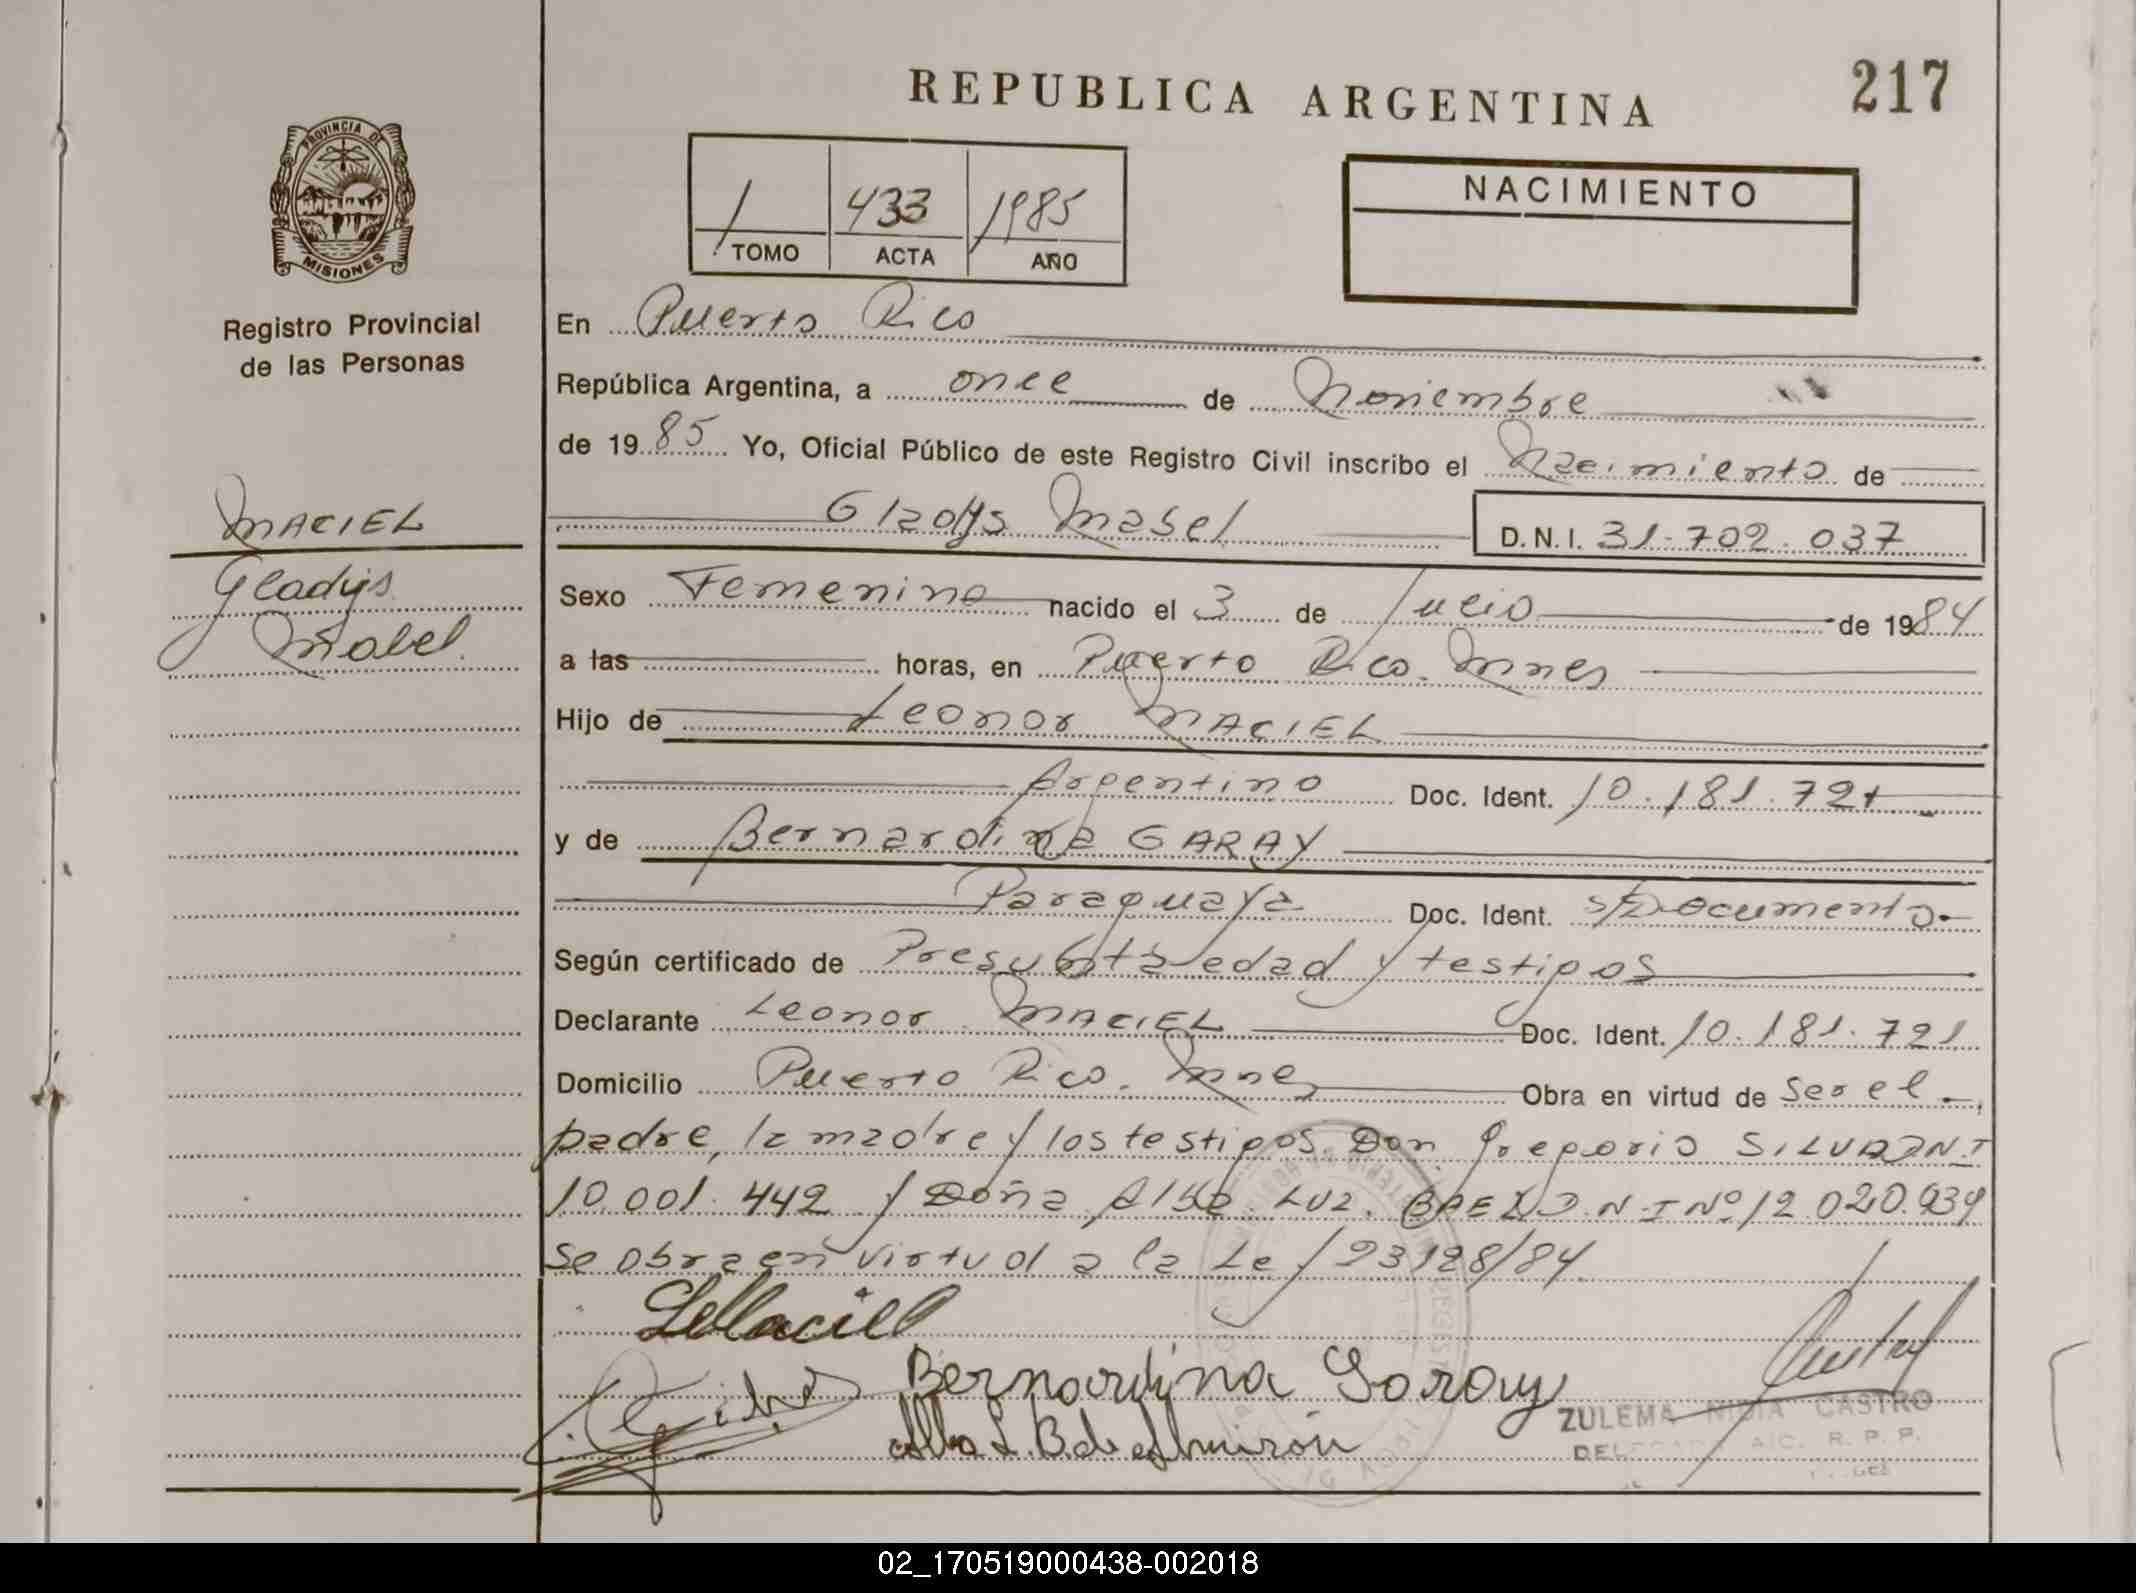 REPUBLICA ARGENTINA
217
PROVINCIA DE
MISIONES
Registro Provincial
de las Personas
1 433 1985
TOMO ACTA AÑO
NACIMIENTO
En Puerto Rico
República Argentina, a once de Noviembre
de 1985 Yo, Oficial Público de este Registro Civil inscribo el Nacimiento de
Gladys Mabel
D.N.I. 31.702.037
MACIEL
Gladys
Mabel.
Sexo Femenino nacido el 3 de Julio de 1984
a las horas, en Puerto Rico. Mnes
Hijo de Leonor MACIEL
Argentino Doc. Ident. 10.181.721
y de Bernardina GARAY
Paraguaya Doc. Ident. s/Documento-
Según certificado de Presunta edad y testigos
Declarante Leonor MACIEL Doc. Ident. 10.181.721
Domicilio Puerto Rico. Mnes Obra en virtud de ser el
padre, la madre y los testigos Don Gregorio SILVA DNI
10.001.442 y Doña Alba Luz BAEZ D.N.I Nº 12.020.939
se obra en virtud a la Ley 23128/84
LeMaciel
Bernardina Garay
Alba L. B. de Almirón
ZULEMA NIDIA CASTRO
R. P. P.
02_170519000438-002018